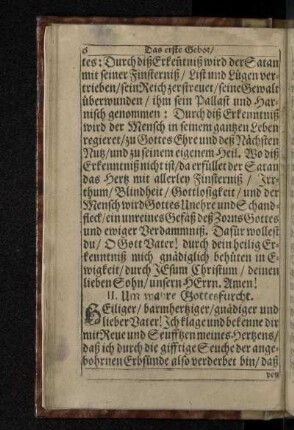 6 Das erste Gebot/
tes: Durch diß Erkeñtniß wird der Satan
mit seiner Finsterniß / List und Lügen ver-
trieben/ sein Reich zerstreuet/ seine Gewalt
überwunden / ihm sein Pallast und Har-
nisch genommen: Durch diß Erkenntniß
wird der Mensch in seinem gantzen Leben
regieret/ zu Gottes Ehre und deß Nächsten
Nutz/ und zu seinem eigenem Heil. Wo diß
Erkenntniß nicht ist/ da erfüllet der Satan
das Hertz mit allerley Finsterniß / Irr-
thum/ Blindheit / Gottlosigkeit / und der
Mensch wird Gottes Unehre und Schand-
fleck/ ein unreines Gefäß deß Zorns Gottes
und ewiger Verdammniß. Dafür wollest
du / O Gott Vater! durch dein heilig Er-
kenntniß mich gnädiglich behüten in E-
wigkeit/ durch JEsum Christum / deinen
lieben Sohn/ unsern HErrn. Amen!
II. Um wahre Gottesfurcht.
HEiliger/ barmhertziger/ gnädiger und
lieber Vater! Ich klage und bekenne dir
mit Reue und Seufftzen meines Hertzens/
daß ich durch die gifftige Seuche der ange-
bohrnen Erbsünde also verderbet bin/ daß
von